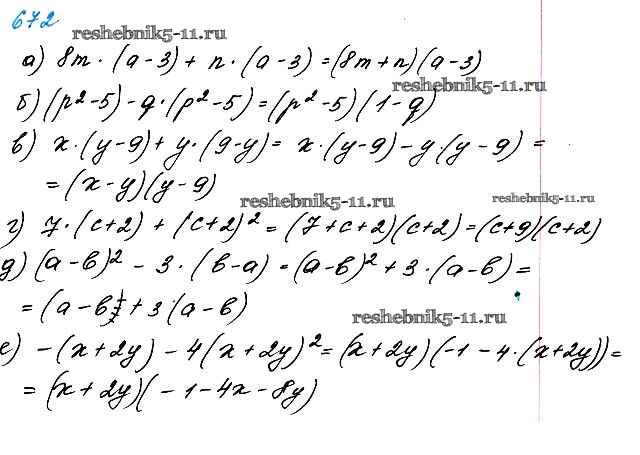 672
reshebnik5-11.ru
а) 8m · (a-3) + n · (a-3) = (8m+n)(a-3)
reshebnik5-11.ru
б) (p²-5) - q · (p²-5) = (p²-5)(1-q)
в) x · (y-9) + y · (9-y) = x · (y-9) - y · (y-9) =
= (x-y)(y-9)
reshebnik5-11.ru
reshebnik5-11.ru
г) 7 · (c+2) + (c+2)² = (7+c+2)(c+2) = (c+9)(c+2)
д) (a-b)² - 3 · (b-a) = (a-b)² + 3 · (a-b) =
= (a-b + 3 · (a-b)
reshebnik5-11.ru
е) -(x+2y) - 4(x+2y)² = (x+2y)(-1-4 · (x+2y)) =
= (x+2y)(-1-4x-8y)